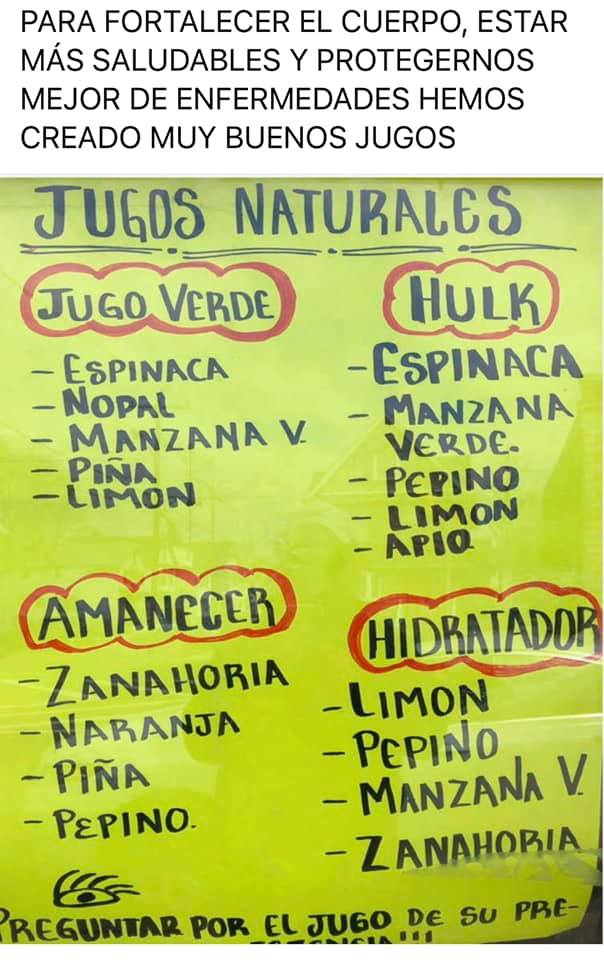 PARA FORTALECER EL CUERPO, ESTAR
MÁS SALUDABLES Y PROTEGERNOS
MEJOR DE ENFERMEDADES HEMOS
CREADO MUY BUENOS JUGOS
JUGOS NATURALES
JUGO VERDE
- ESPINACA
- NOPAL
- MANZANA V.
- PIÑA
- LIMON
HULK
- ESPINACA
- MANZANA
VERDE.
- PEPINO
- LIMON
- APIO
AMANECER
- ZANAHORIA
- NARANJA
- PIÑA
- PEPINO.
HIDRATADOR
- LIMON
- PEPINO
- MANZANA V.
- ZANAHORIA
PREGUNTAR POR EL JUGO DE SU PRE-